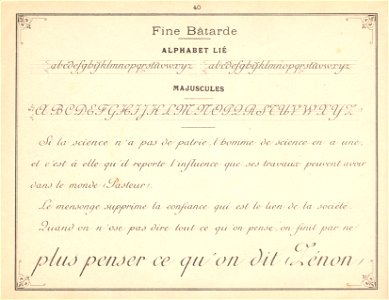 40
Fine Bâtarde
ALPHABET LIÉ
abcdefghijklmnopqrstuvwxyz abcdefghijklmnopqrstuvwxyz
MAJUSCULES
ABCDEFGHIJKLMNOPQRSTUVWXYZ
Si la science n'a pas de patrie, l'homme de science en a une,
et c'est à elle qu'il reporte l'influence que ses travaux peuvent avoir
dans le monde (Pasteur).
Le mensonge supprime la confiance qui est le lien de la société.
Quand on n'ose pas dire tout ce qu'on pense, on finit par ne
plus penser ce qu'on dit (Zénon)